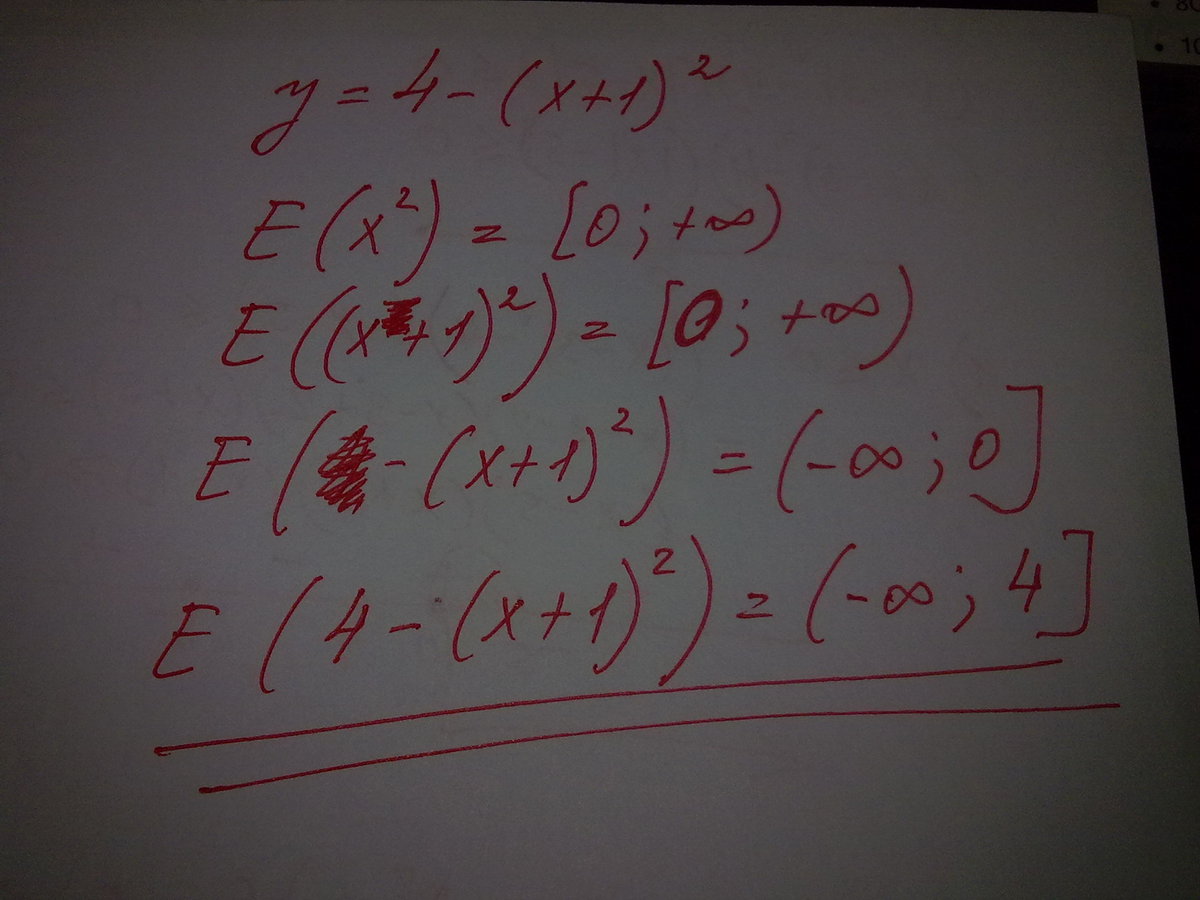 y = 4 - (x+1)²
E(x²) = [0; +∞)
E((x+1)²) = [0; +∞)
E(-(x+1)²) = (-∞; 0]
E(4-(x+1)²) = (-∞; 4]